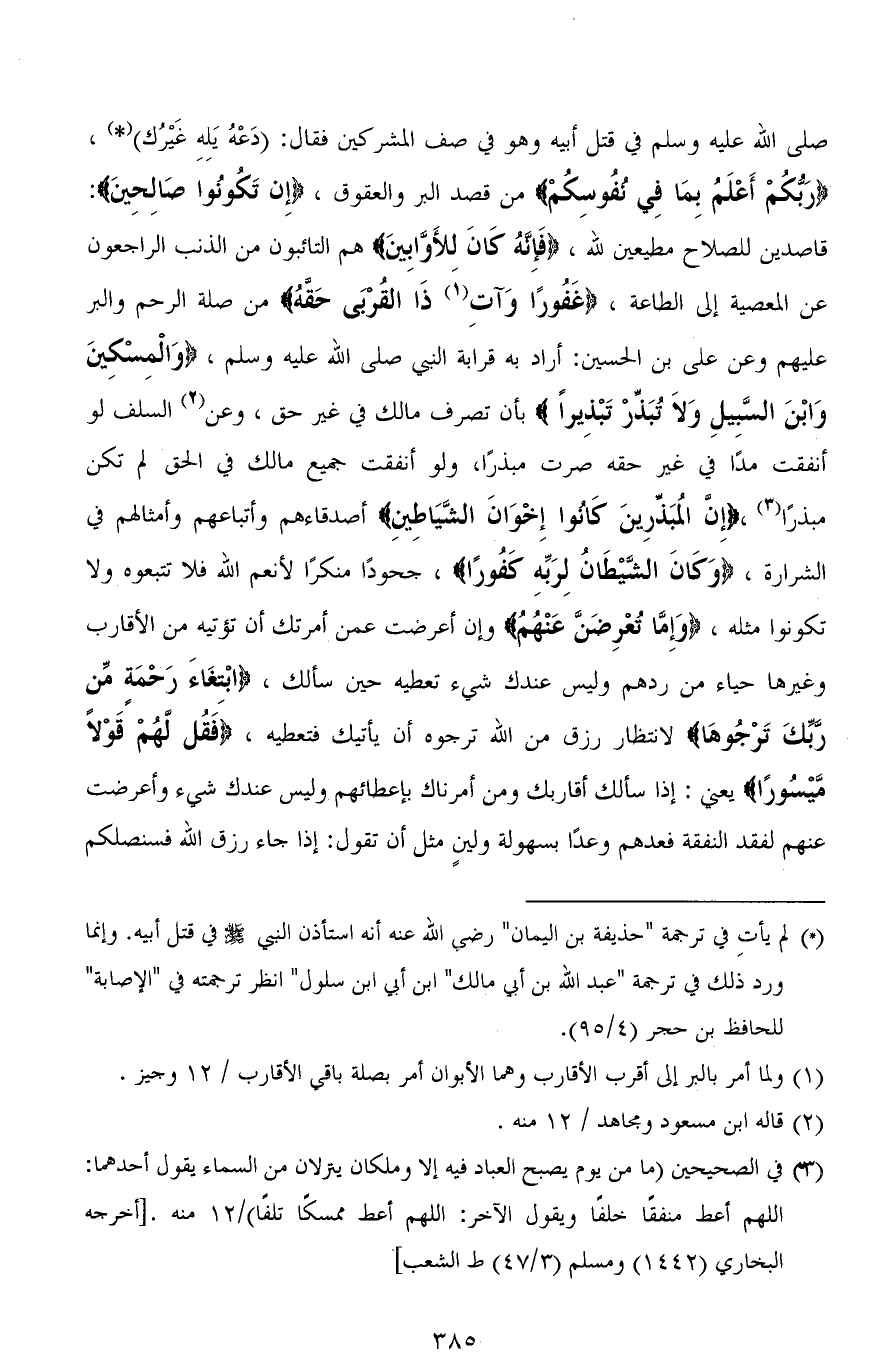 صلى الله عليه وسلم في قتل أبيه وهو في صف المشركين فقال: (دَعْهُ يَلِهِ غَيْرُك)(*) ،
﴿رَبُّكُمْ أَعْلَمُ بِمَا فِي نُفُوسِكُمْ﴾ من قصد البر والعقوق ، ﴿إِن تَكُونُوا صَالِحِينَ﴾:
قاصدين للصلاح مطيعين لله ، ﴿فَإِنَّهُ كَانَ لِلأَوَّابِينَ﴾ هم التائبون من الذنب الراجعون
عن المعصية إلى الطاعة ، ﴿غَفُورًا وَآتِ(١) ذَا القُرْبَى حَقَّهُ﴾ من صلة الرحم والبر
عليهم وعن على بن الحسين: أراد به قرابة النبي صلى الله عليه وسلم ، ﴿وَالْمِسْكِينَ
وَابْنَ السَّبِيلِ وَلاَ تُبَذِّرْ تَبْذِيراً ﴾ بأن تصرف مالك في غير حق ، وعن(٢) السلف لو
أنفقت مدًا في غير حقه صرت مبذرًا، ولو أنفقت جميع مالك في الحق لم تكن
مبذرًا(٣) ،﴿إِنَّ الْمُبَذِّرِينَ كَانُوا إِخْوَانَ الشَّيَاطِينِ﴾ أصدقاءهم وأتباعهم وأمثالهم في
الشرارة ، ﴿وَكَانَ الشَّيْطَانُ لِرَبِّهِ كَفُورًا﴾ ، جحودًا منكرًا لأنعم الله فلا تتبعوه ولا
تكونوا مثله ، ﴿وَإِمَّا تُعْرِضَنَّ عَنْهُمُ﴾ وإن أعرضت عمن أمرتك أن تؤتيه من الأقارب
وغيرها حياء من ردهم وليس عندك شيء تعطيه حين سألك ، ﴿ابْتِغَاءَ رَحْمَةٍ مِّن
رَّبِّكَ تَرْجُوهَا﴾ لانتظار رزق من الله ترجوه أن يأتيك فتعطيه ، ﴿فَقُل لَّهُمْ قَوْلاً
مَّيْسُورًا﴾ يعني : إذا سألك أقاربك ومن أمرناك بإعطائهم وليس عندك شيء وأعرضت
عنهم لفقد النفقة فعدهم وعدًا بسهولة ولينٍ مثل أن تقول: إذا جاء رزق الله فسنصلكم
(*) لم يأتِ في ترجمة "حذيفة بن اليمان" رضي الله عنه أنه استأذن النبي ﷺ في قتل أبيه. وإنما
ورد ذلك في ترجمة "عبد الله بن أبي مالك" ابن أبي ابن سلول" انظر ترجمته في "الإصابة"
للحافظ بن حجر (٩٥/٤).
(١) ولما أمر بالبر إلى أقرب الأقارب وهما الأبوان أمر بصلة باقي الأقارب / ١٢ وجيز .
(٢) قاله ابن مسعود ومجاهد / ١٢ منه .
(٣) في الصحيحين (ما من يوم يصبح العباد فيه إلا وملكان ينزلان من السماء يقول أحدهما:
اللهم أعط منفقًا خلفًا ويقول الآخر: اللهم أعط ممسكًا تلفًا)/١٢ منه .[أخرجه
البخاري (١٤٤٢) ومسلم (٤٧/٣) ط الشعب]
٣٨٥